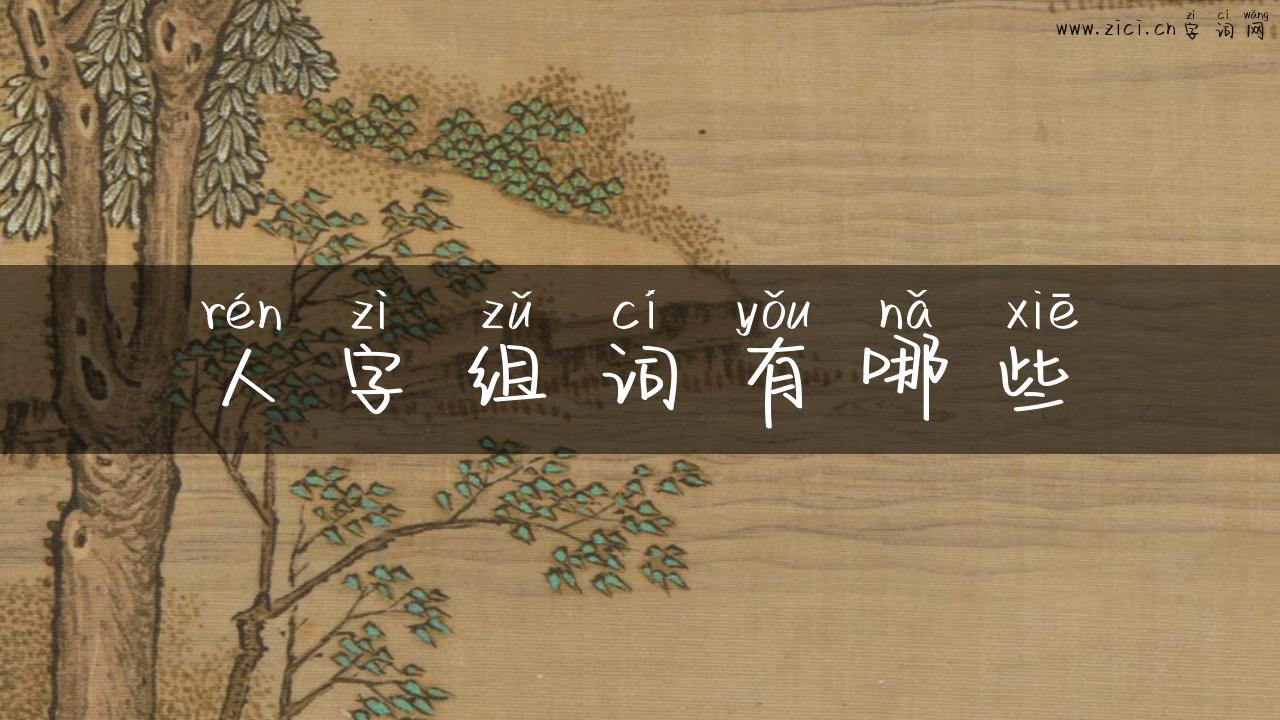 zì cí wǎng
www.zici.cn字词网
rén zì zǔ cí yǒu nǎ xiē
人字组词有哪些